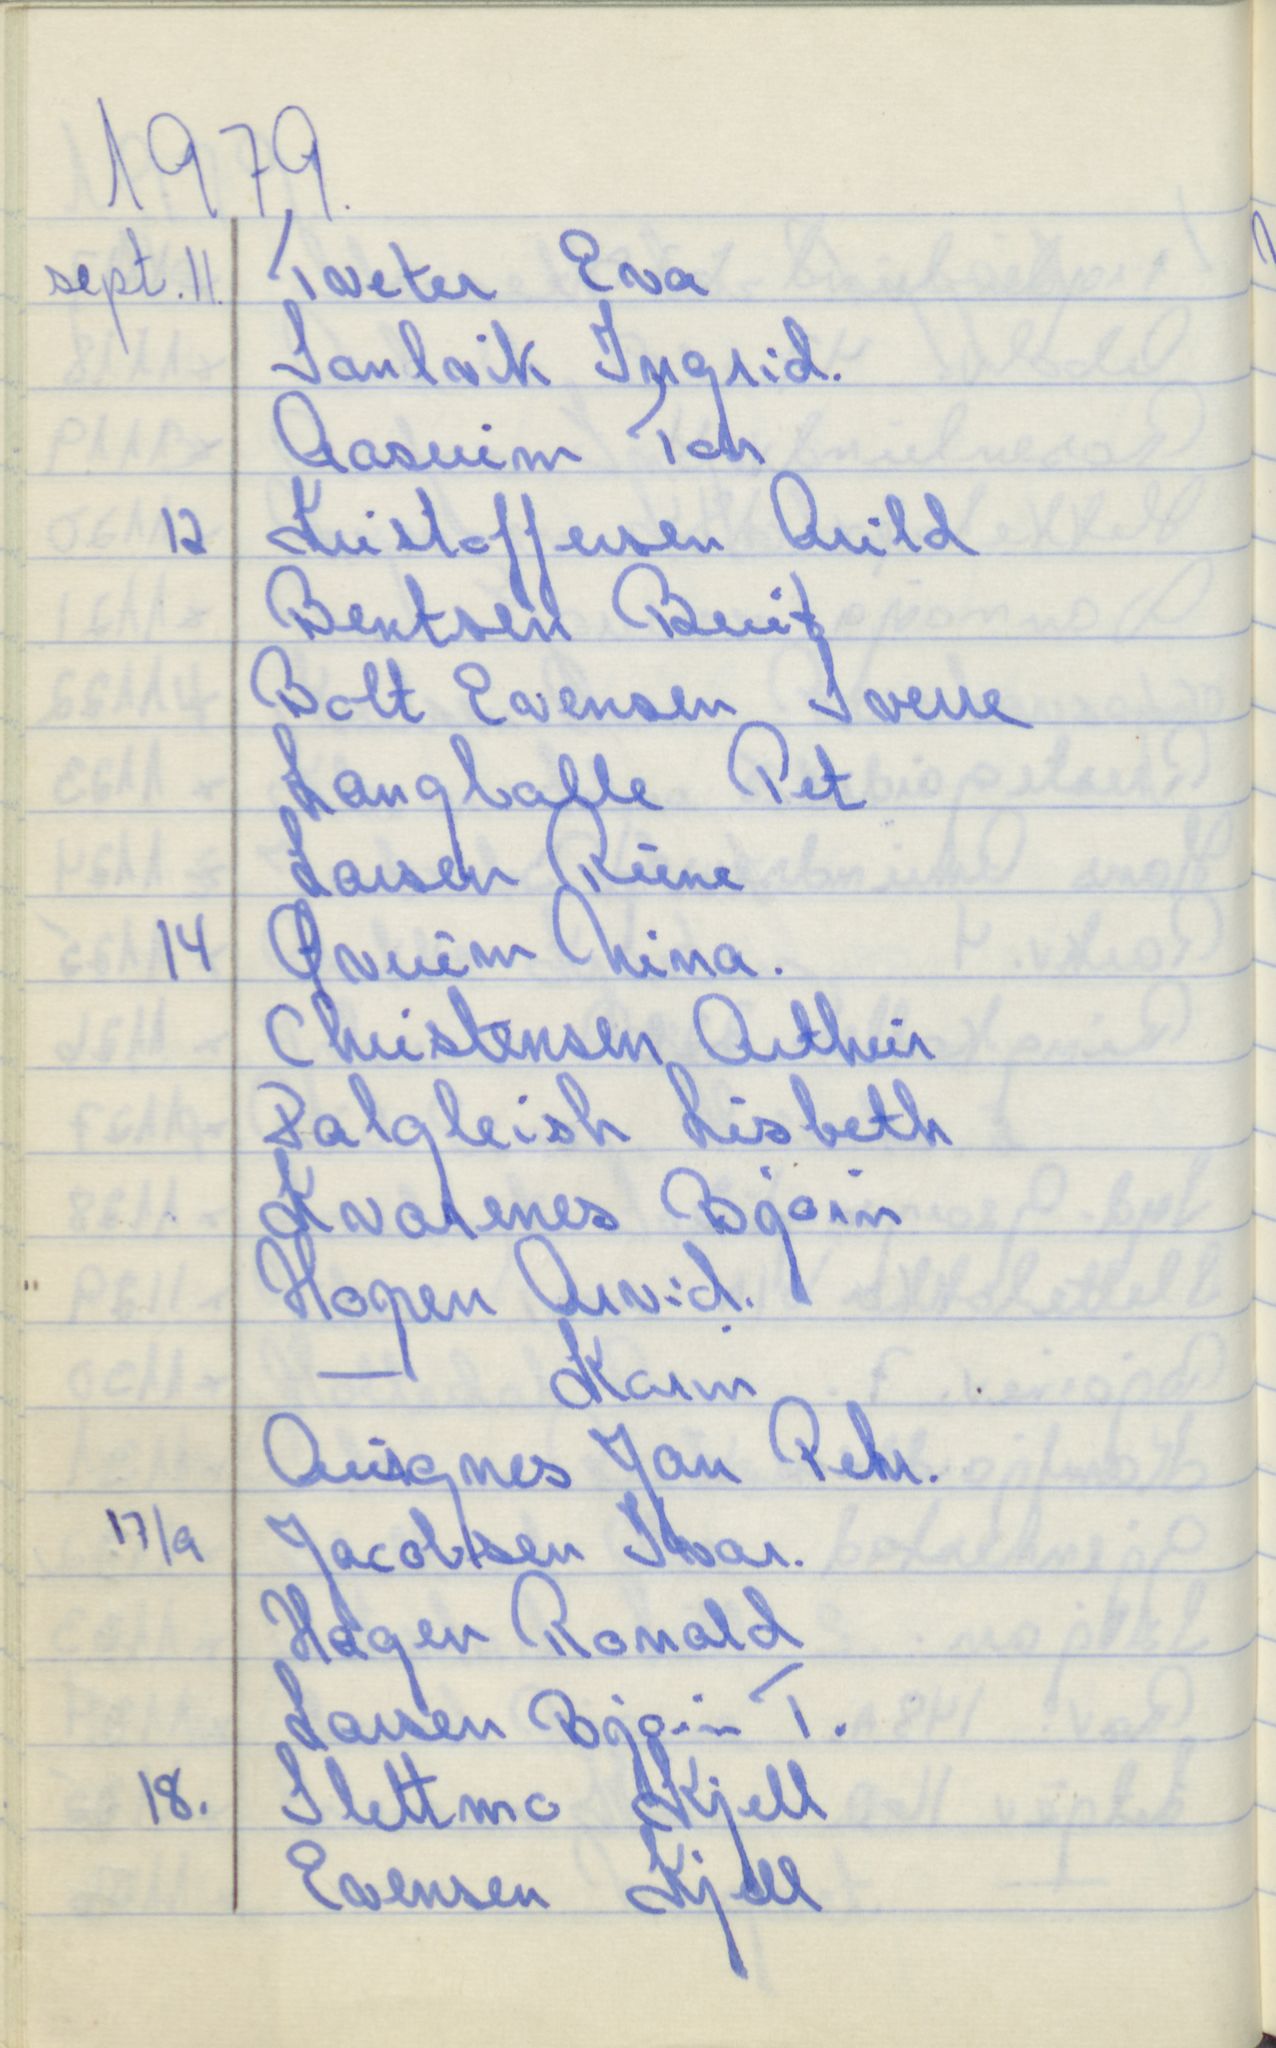 1979.
sept. 11. Tveter Eva
Saulvik Ingrid.
Aasheim Tor
12 Kristoffersen Arild
Bentsen Berit
Bolt Evensen Sverre
Langballe Pet
Larsen Rune
14 Qverim Nina.
Christensen Arthur
Dalgleish Lisbeth
Kvarenes Bjørn
Hopen Arvid.
— Karin
Arisgnes Jan Petr.
17/9 Jacobsen Ivar.
Hagen Ronald
Larsen Bjørn T.
18. Slettmo Kjell
Evensen Kjell